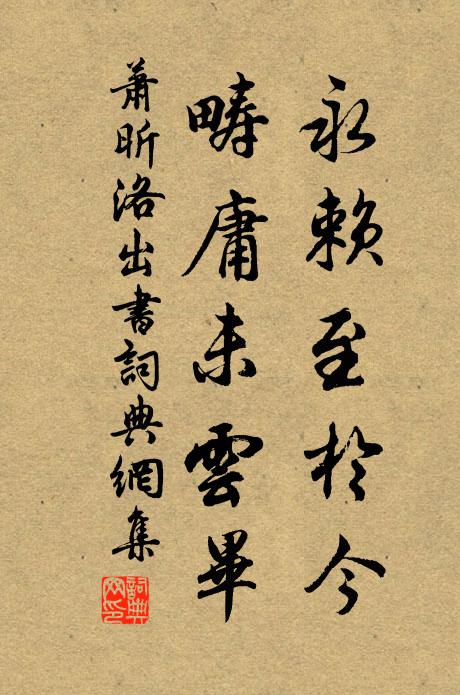 永賴至於今
疇庸未雲畢
蕭昕洛出書詞典網集
詞典
网印